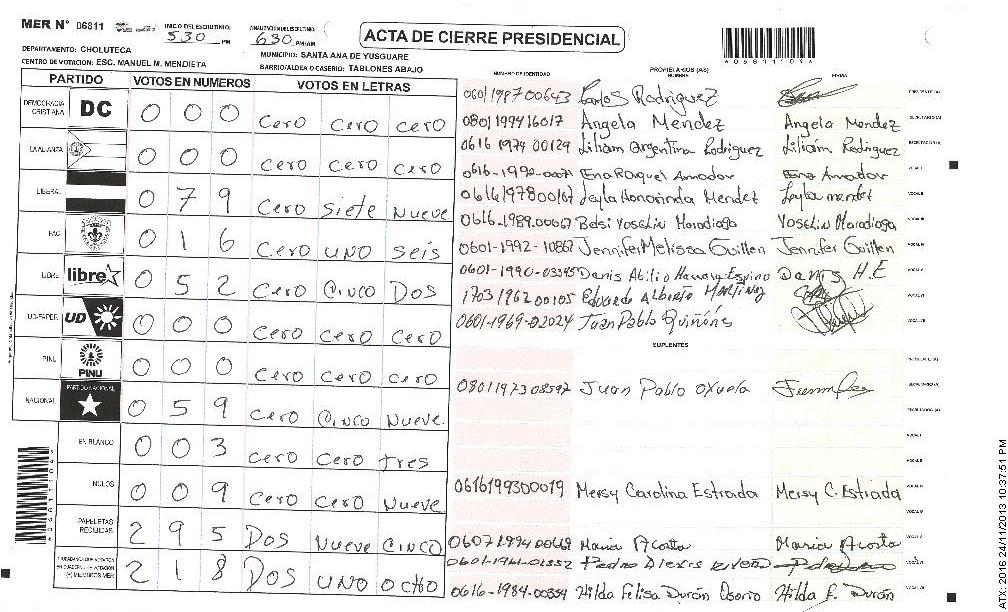 MER N° 06811 INICIO DEL ESCRUTINIO: 530 PM FINALIZACION DEL ESCRUTINIO: 630 PM/AM ACTA DE CIERRE PRESIDENCIAL
DEPARTAMENTO: CHOLUTECA MUNICIPIO: SANTA ANA DE YUSGUARE
CENTRO DE VOTACION: ESC. MANUEL M. MENDIETA BARRIO/ALDEA O CASERIO: TABLONES ABAJO
PARTIDO VOTOS EN NUMEROS VOTOS EN LETRAS
DEMOCRACIA CRISTIANA DC 0 0 0 Cero Cero Cero
LA ALIANZA 0 0 0 Cero Cero Cero
LIBERAL 0 7 9 Cero Siete Nueve
PAC 0 1 6 Cero UNO Seis
LIBRE libre 0 5 2 Cero Cinco Dos
UD-FAPER UD 0 0 0 Cero Cero Cero
PINU PINU 0 0 0 Cero Cero Cero
NACIONAL PARTIDO NACIONAL 0 5 9 Cero Cinco Nueve
EN BLANCO 0 0 3 Cero Cero tres
NULOS 0 0 9 Cero Cero Nueve
PAPELETAS RECIBIDAS 2 9 5 DOS Nueve Cinco
CIUDADANOS QUE VOTARON EN CUADERNO DE VOTACION (+) MIEMBROS MER 2 1 8 DOS UNO OCHO
NUMERO DE IDENTIDAD PROPIETARIOS (AS) NOMBRE FIRMA
0601198700643 Carlos Rodriguez PRESIDENTE (A)
0801199416017 Angela Mendez Angela Mendez SECRETARIO (A)
0616 1974 00129 Liliam Argentina Rodriguez Liliam Rodriguez ESCRUTADOR (A)
0616-1990-0071 Ena Raquel Amador Ena Amador VOCAL I
0616197800167 Leyla Honorinda Mendez Leyla mendez VOCAL II
0616-1989-00067 Belsi Yoselin Maradiaga Yoselin Maradiaga VOCAL III
0601-1992-10867 Jennifer Melissa Guillen Jennifer Guillen VOCAL IV
0601-1990-03345 Danis Abilio Herrera Espino Danis H.E VOCAL V
1703196200105 Eduardo Alberto Martinez VOCAL VI
0601-1969-02024 Juan Pablo Quiñónes VOCAL VII
SUPLENTES
PRESIDENTE (A)
0801197308597 Juan Pablo Oxuela SECRETARIO (A)
ESCRUTADOR (A)
VOCAL I
VOCAL II
VOCAL III
0616199300019 Mersy Carolina Estrada Mersy C. Estrada VOCAL IV
0607199400668 Maria Acosta Maria Acosta VOCAL V
0601-1961-01552 Pedro Alexis VOCAL VI
0616-1984-00354 Hilda Felisa Durán Osorio Hilda F. Durán VOCAL VII
ATX 2016 24/11/2013 10:37:51 PM